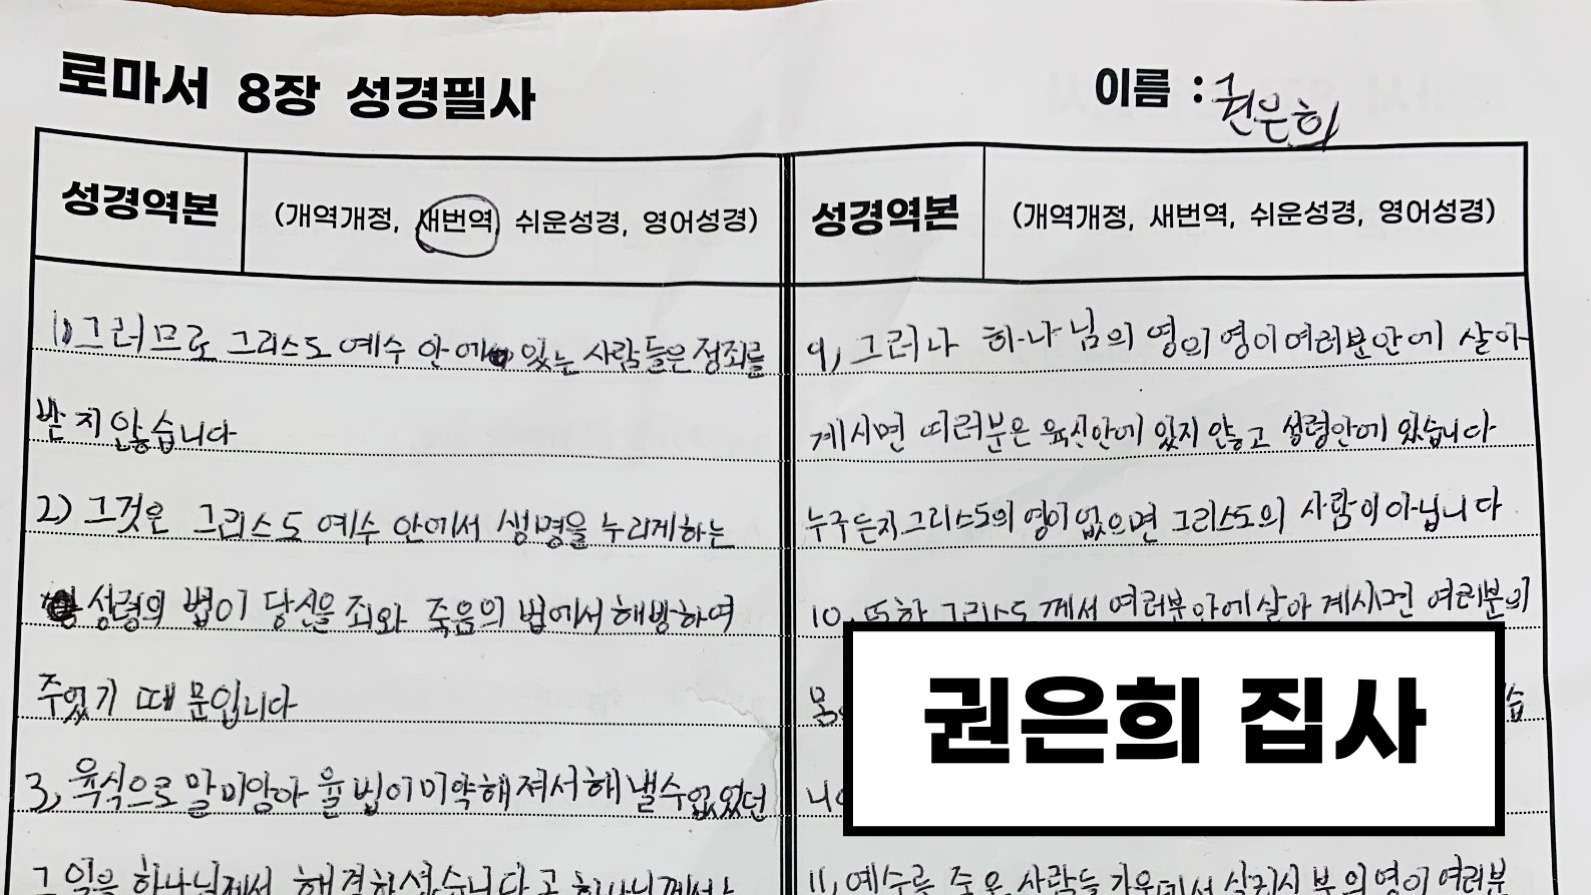 로마서 8장 성경필사
이름 : 권은희
성경역본 (개역개정, 새번역, 쉬운성경, 영어성경)
1) 그러므로 그리스도 예수 안에 있는 사람들은 정죄를
받지 않습니다
2) 그것은 그리스도 예수 안에서 생명을 누리게하는
성령의 법이 당신을 죄와 죽음의 법에서 해방하여
주었기 때문입니다
3, 육식으로 말미암아 율법이 미약해져서 해 낼수 없었던
그 일을 하나님께서 해결하셨습니다 곧 하나님께서는
성경역본 (개역개정, 새번역, 쉬운성경, 영어성경)
9, 그러나 하나님의 영의 영이 여러분안에 살아
계시면 여러분은 육신안에 있지 않고 성령안에 있습니다
누구든지 그리스도의 영이 없으면 그리스도의 사람이 아닙니다
10, 또한 그리스도께서 여러분 안에 살아 계시면 여러분의
몸
습
니
11, 예수를 죽은 사람들 가운데서 살리신 분의 영이 여러분
권은희 집사